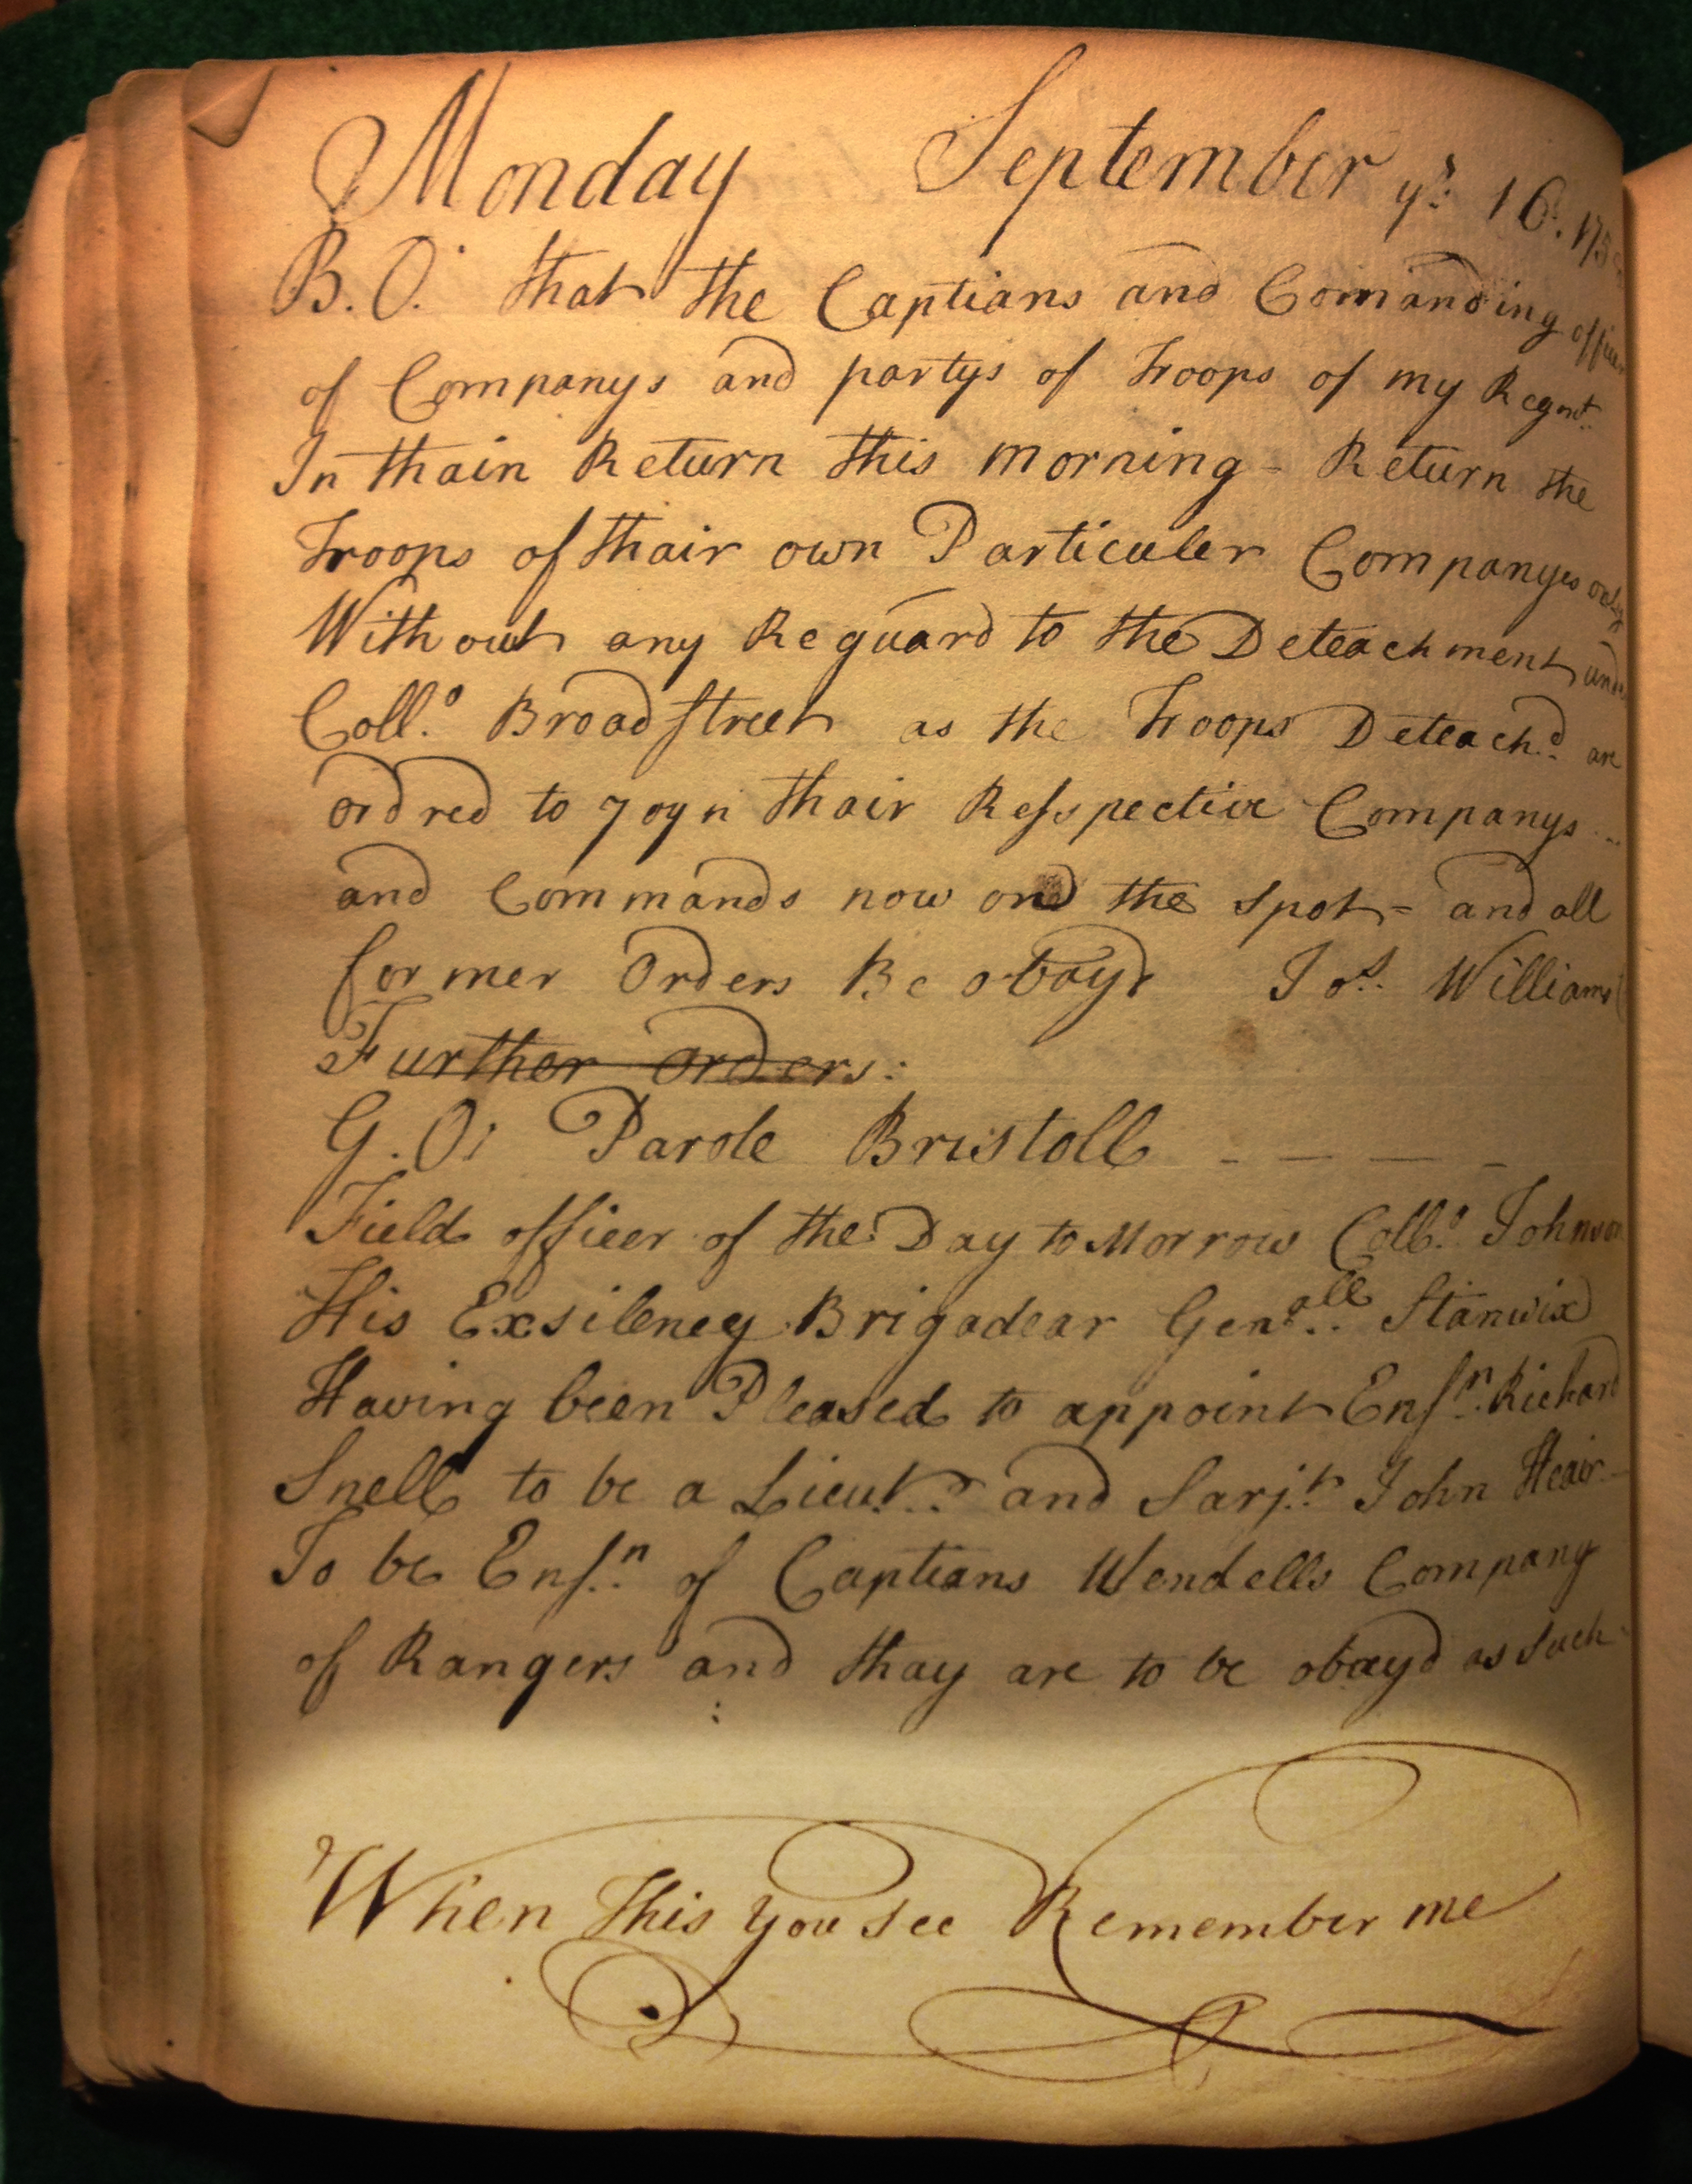 Monday September ye 16. 175
B. O. that the Captians and Comanding officer
of Companys and partys of Troops of my Regmt.
In thain Return this morning - Return the
Troops of thair own Particuler Companyes only
With out any Reguard to the Deteachment under
Coll.o Broadstreet as the Troops Deteach.d are
ordred to Joyn thair Resspective Companys
and Commands now ond the spot = and all
former Orders Be obayd Jos. Williams
Further Orders:
G. O: Parole Bristoll - - - -
Field officer of the Day to Morrow Coll.o Johnson
His Exsileney Brigadear Gen.all Stanwix
Having been Pleased to appoint Ens.n Richard
Snell to be a Lieut. and Sarj.t John Heair
To be Ens.n of Captians Wendells Company
of Rangers and thay are to be obayd as such
When this you see Remember me